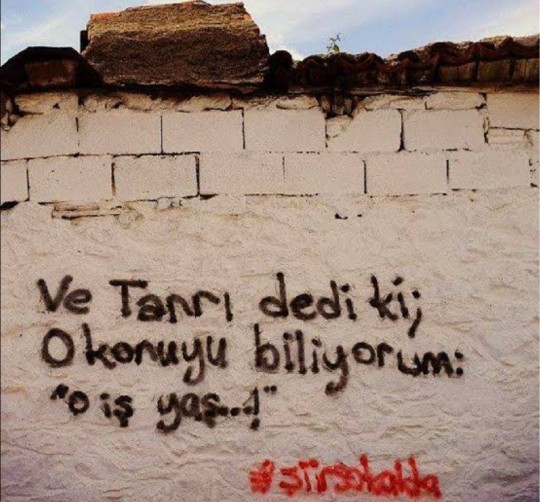 Ve Tanrı dedi ki;
O konuyu biliyorum:
"o iş yaş...!"
#şiirsokakta